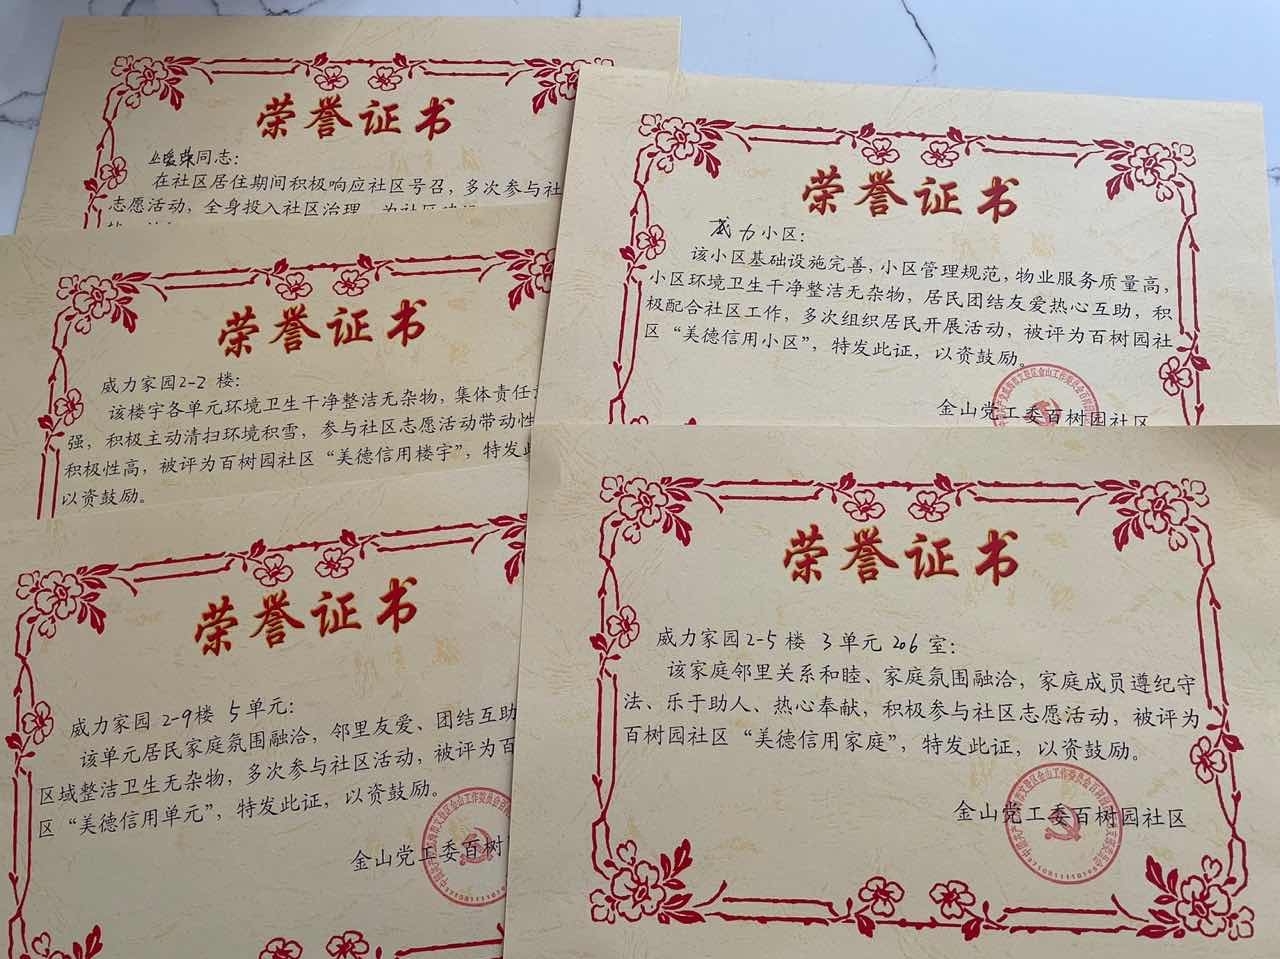 荣誉证书
同志：
在社区居住期间积极响应社区号召，多次参与社
志愿活动，全身投入社区治理，为社区
荣誉证书
威力小区：
该小区基础设施完善，小区管理规范，物业服务质量高，
小区环境卫生干净整洁无杂物，居民团结友爱热心互助，积
极配合社区工作，多次组织居民开展活动，被评为百树园社
区“美德信用小区”，特发此证，以资鼓励。
金山党工委百树园社区
荣誉证书
威力家园2-2楼：
该楼宇各单元环境卫生干净整洁无杂物，集体责任
强，积极主动清扫环境积雪，参与社区志愿活动带动性
积极性高，被评为百树园社区“美德信用楼宇”，特发此
以资鼓励。
荣誉证书
威力家园 2-9楼 5单元：
该单元居民家庭氛围融洽，邻里友爱、团结互助
区域整洁卫生无杂物，多次参与社区活动，被评为百
区“美德信用单元”，特发此证，以资鼓励。
金山党工委百树
荣誉证书
威力家园2-5楼 3单元 206室：
该家庭邻里关系和睦、家庭氛围融洽，家庭成员遵纪守
法、乐于助人、热心奉献，积极参与社区志愿活动，被评为
百树园社区“美德信用家庭”，特发此证，以资鼓励。
金山党工委百树园社区